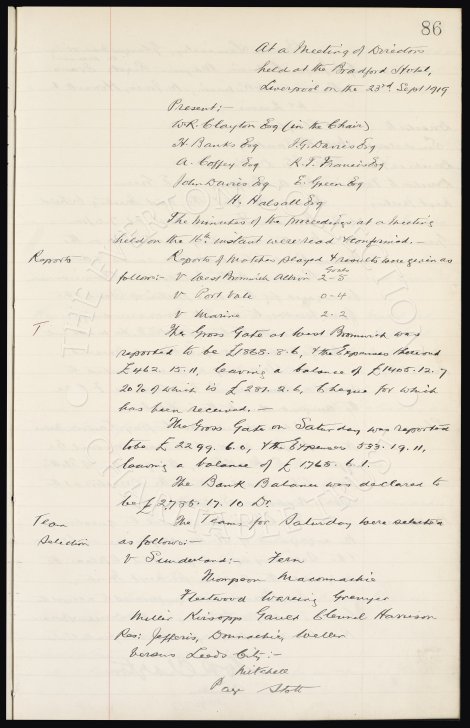 86
At a Meeting of Directors
held at the Bradford Hotel,
Liverpool on the 23rd Sept 1919
Present:-
W.R. Clayton Esq (in the Chair)
H. Banks Esq J.G. Davies Esq
A. Coffey Esq R.T. Francis Esq
John Davies Esq E. Green Esq
H. Halsall Esq
The minutes of the proceedings at a meeting
held on the 16th instant were read & confirmed. -
Reports Reports of matches played & results were given as
Goals
follow:- v West Bromwich Albion 2-5
v Port Vale 0-4
v Marine 2-2
T The Gross Gate at West Bromwich was
reported to be £1868. 8. 6, & the Expenses thereon
£462. 15. 11, leaving a balance of £1405. 12. 7
20% of which is £281. 2. 6, Cheque for which
has been received. -
The Gross Gate on Saturday was reported
to be £2299. 6. 0, & the Expenses 533. 19. 11,
leaving a balance of £1765. 6. 1.
The Bank Balance was declared to
be £2735. 17. 10 Dr
Team The Teams for Saturday were selected
Selection as follows:-
v Sunderland:- Fern
Thompson Maconnachie
Fleetwood Wareing Grenyer
Miller Kirsopp Gauld Clennell Harrison
Res: Jefferis, Donnachie, Weller
Versus Leeds City:-
Mitchell
Page Stott